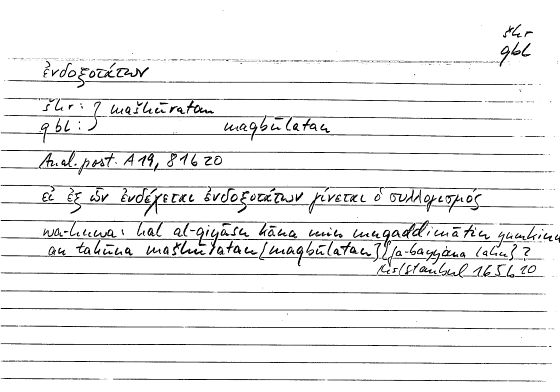 šhr
qbl
ἐνδοξοτάτων
šhr : } mašhūratan
qbl : } maqbūlatan
Anal. post. A 19, 81 b 20
εἰ ἐξ ὧν ἐνδέχεται ἐνδοξοτάτων γίνεται ὁ συλλογισμός
wa-huwa: hal al-qiyāsu kāna min muqaddimātin yumkinu
an takūna mašhūratan [maqbūlatan] fa-bayyana lahu} ?
1656 20